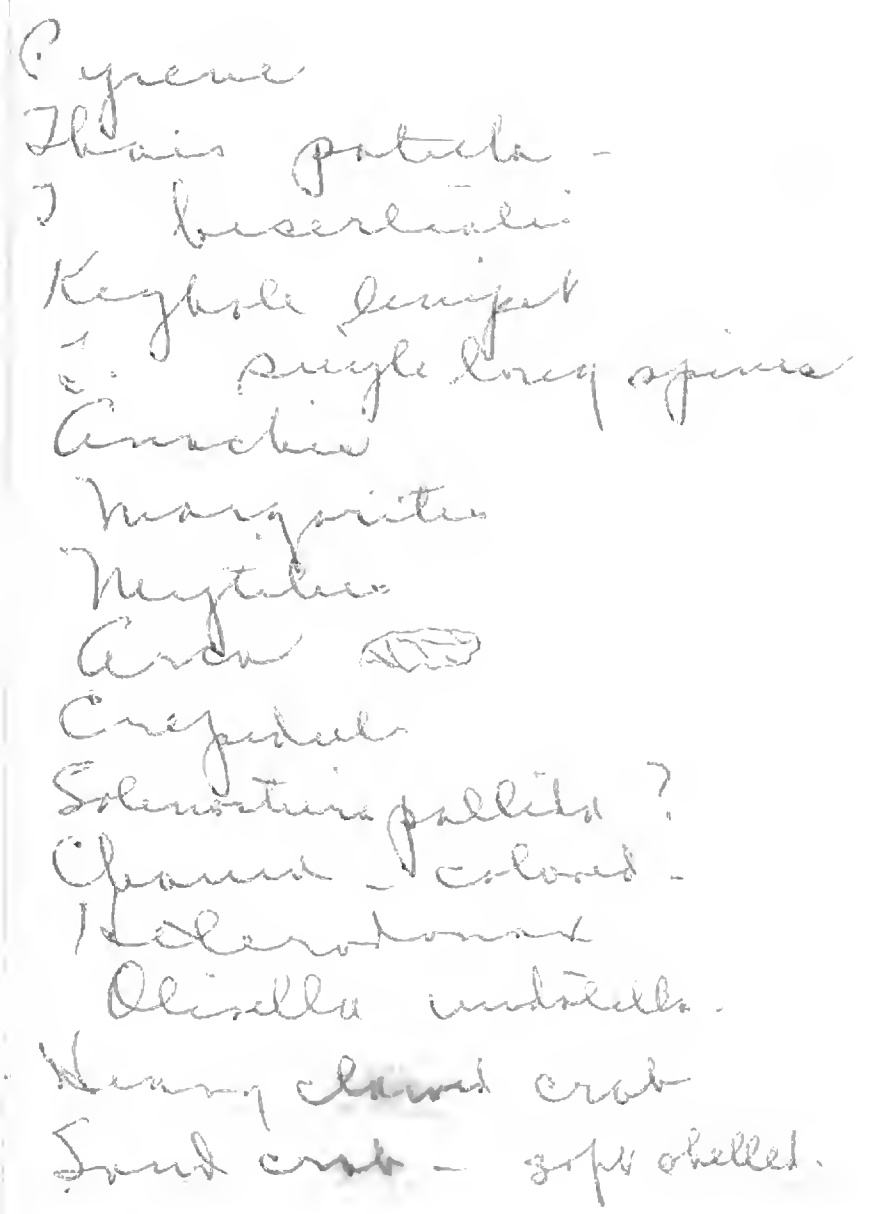 Pyrene
Thais patula -
T biserialis
Keyhole limpet
single long spines
Anachis
Margarites
Mytilus
Arca
Crepidula
Solenosteira pallida ?
Chama - colored -
Heterodonax
Olivella undatella.
Heavy clawed crab
Sand crab - soft shelled.